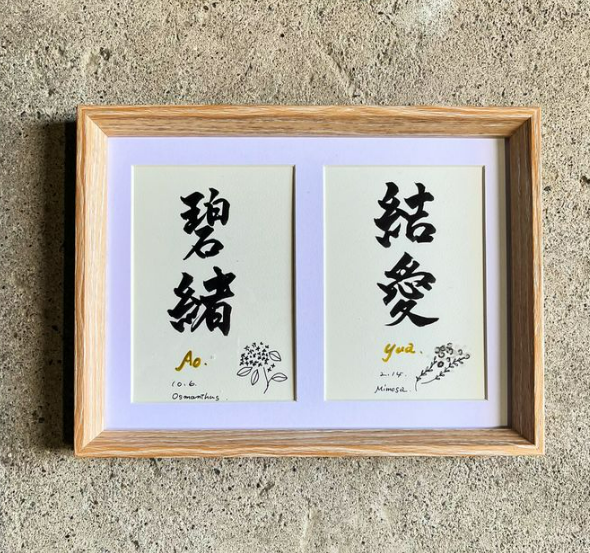 碧緒
Ao.
10.6.
Osmanthus.
結愛
yua.
2.14.
Mimosa.